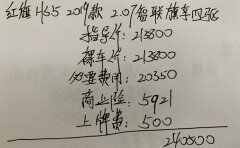 红旗HS5 2019款 2.0T智联旗享四驱
指导价：213800
裸车价：213800
必要费用：20350
商业险：5921
上牌费：500
240500